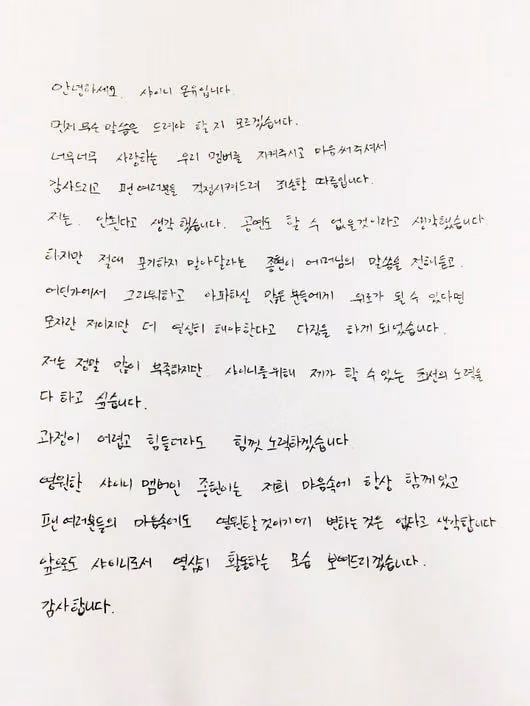 안녕하세요. 샤이니 온유입니다.
먼저 무슨 말씀은 드려야 할 지 모르겠습니다.
너무너무 사랑하는 우리 멤버를 지켜주시고 마음써주셔서
감사드리고 팬 여러분들 걱정시켜드려 죄송할 따름입니다.
저는. 안된다고 생각했습니다. 공연도 할 수 없을것이라고 생각했습니다
하지만 절대 포기하지 말아달라는 종현이 어머님의 말씀을 전해듣고.
어딘가에서 그리워하고 아파하실 많은분들에게 위로가 될 수 있다면
모자란 저이지만 더 열심히 해야한다고 다짐을 하게 되었습니다.
저는 정말 많이 부족하지만 샤이니를위해 제가 할 수 있는 최선의 노력을
다 하고 싶습니다.
과정이 어렵고 힘들더라도 힘껏 노력하겠습니다
영원한 샤이니 멤버인 종현이는 저희 마음속에 항상 함께 있고
팬 여러분들의 마음속에도 영원할것이기에 변하는것은 없다고 생각합니다
앞으로도 샤이니로서 열심히 활동하는 모습 보여드리겠습니다.
감사합니다.